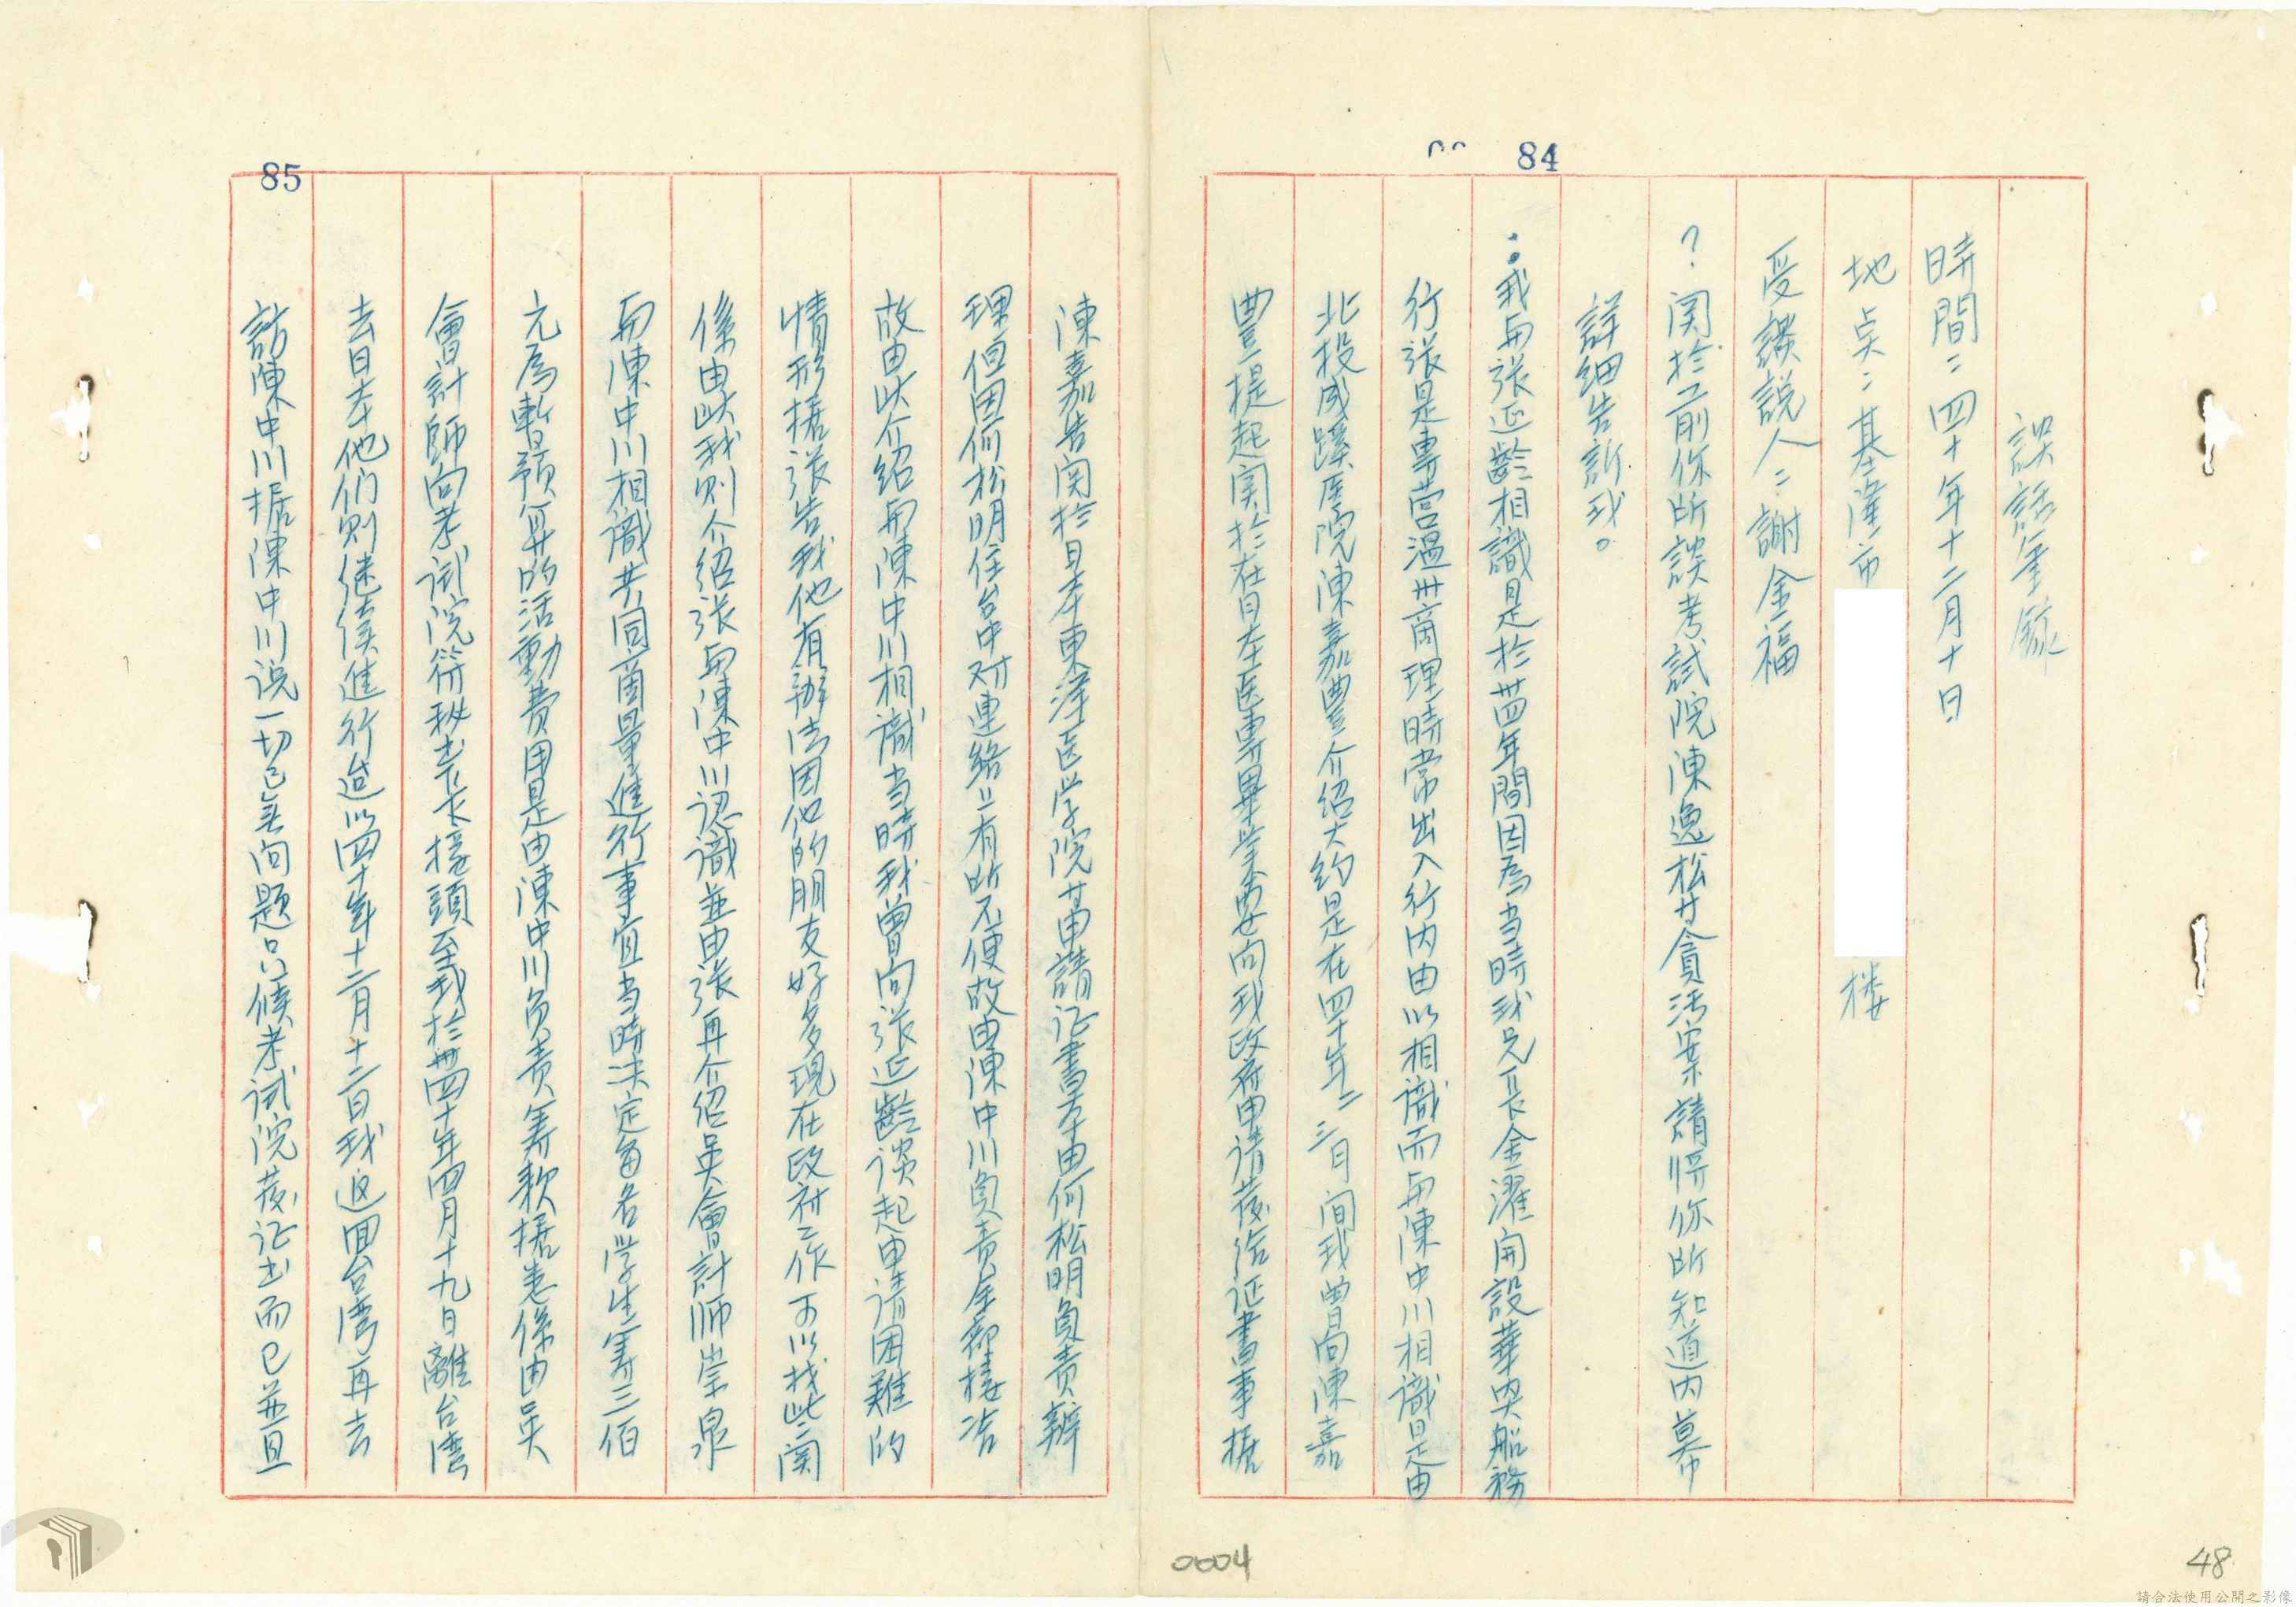 84
談話筆錄
時間：四十年十二月十日
地点：基隆市
楼
受談説人：謝金福
？関於前你所談考試院陳逸松廿貪汚案請將你所知道内幕
詳細告訴我。
：我与張延齡相識是於卅四年間因為当時我兄長金濯開設華奥船務
行張是專营温州商理時常出入行内由以相識而与陳中川相識是由
北投成蹊医院陳嘉豊介绍大约是在四十年二三月间我曾向陳嘉
豊提起関於在日本医專畢業要向我政府申请發给证書事据
陳嘉告関於日本東洋医学院廿苗請证書本由何松明負责辦
理但因何松明住台中对連絡上有所不便故由陳中川負责全部接洽
故由此介绍与陳中川相識当時我曾向张延齡谈起申请困難的
情形据张告我他有辦法因他的朋友好多現在政社工作可以找些関
係由此我则介绍张与陳中川認識並由张再介绍吳會計师崇泉
与陳中川相識共同商量進行事宜当時决定每名学生筹三佰
元為暫預算的活動費用是由陳中川负责筹款据悉係由吴
會計師向考试院符秘书长接頭至我於卅四十年四月十九日離台湾
去日本他们则继续進行迨以四十年十二月十二日我返回台湾再去
訪陳中川据陳中川说一切已無问题只候考试院發证书而已並且
85
0004
48
請合法使用公開之影像